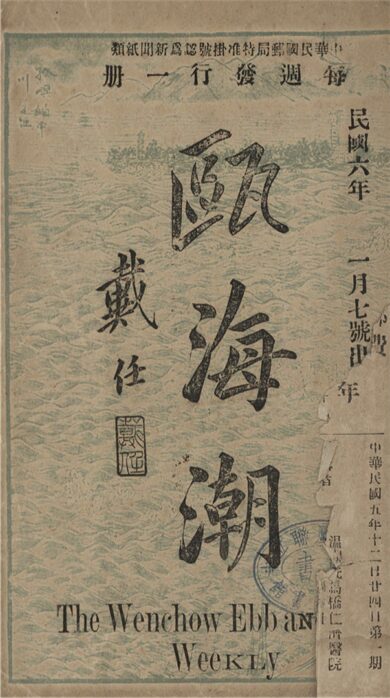 中華民國郵局特准掛號認爲新聞紙類
每週發行一册
民國六年 一月七號出
年
甌海潮
戴任
戴任
中華民國五年十二日廿四日第一期
橋仁濟醫院
The Wenchow Ebb an
Weekly